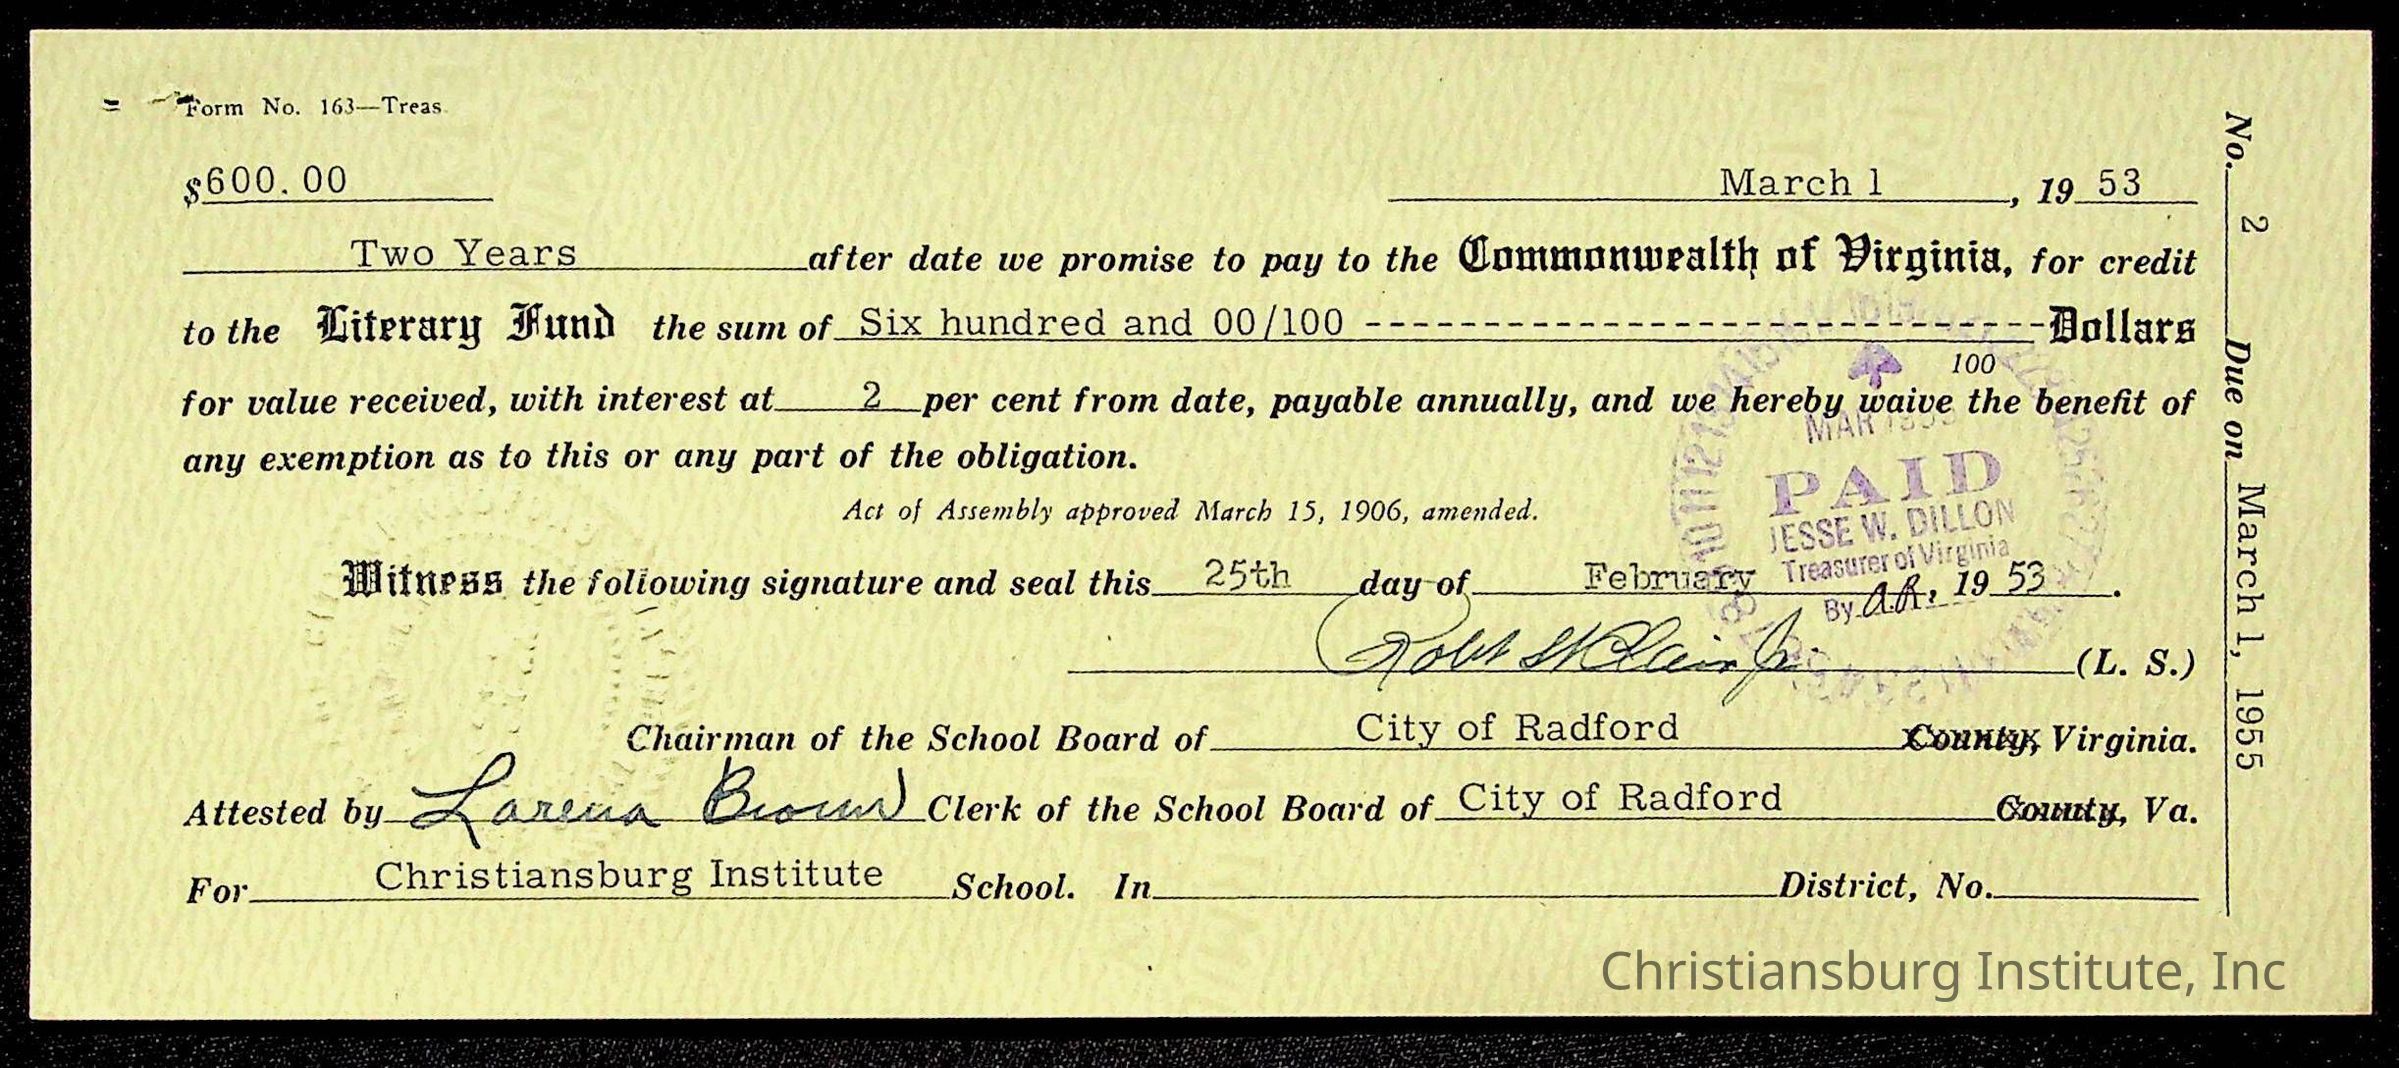 Form No. 163—Treas.
$600.00
March 1, 19 53
Two Years after date we promise to pay to the Commonwealth of Virginia, for credit
to the Literary Fund the sum of Six hundred and 00/100 ---------------------------- Dollars
100
for value received, with interest at 2 per cent from date, payable annually, and we hereby waive the benefit of
any exemption as to this or any part of the obligation.
Act of Assembly approved March 15, 1906, amended.
Witness the following signature and seal this 25th day of February, 19 53.
(L. S.)
Chairman of the School Board of City of Radford County, Virginia.
Attested by Larena Brown Clerk of the School Board of City of Radford County, Va.
For Christiansburg Institute School. In District, No.
No. 2 Due on March 1, 1955
MAR
PAID
JESSE W. DILLON
Treasurer of Virginia
By A.R.
Christiansburg Institute, Inc